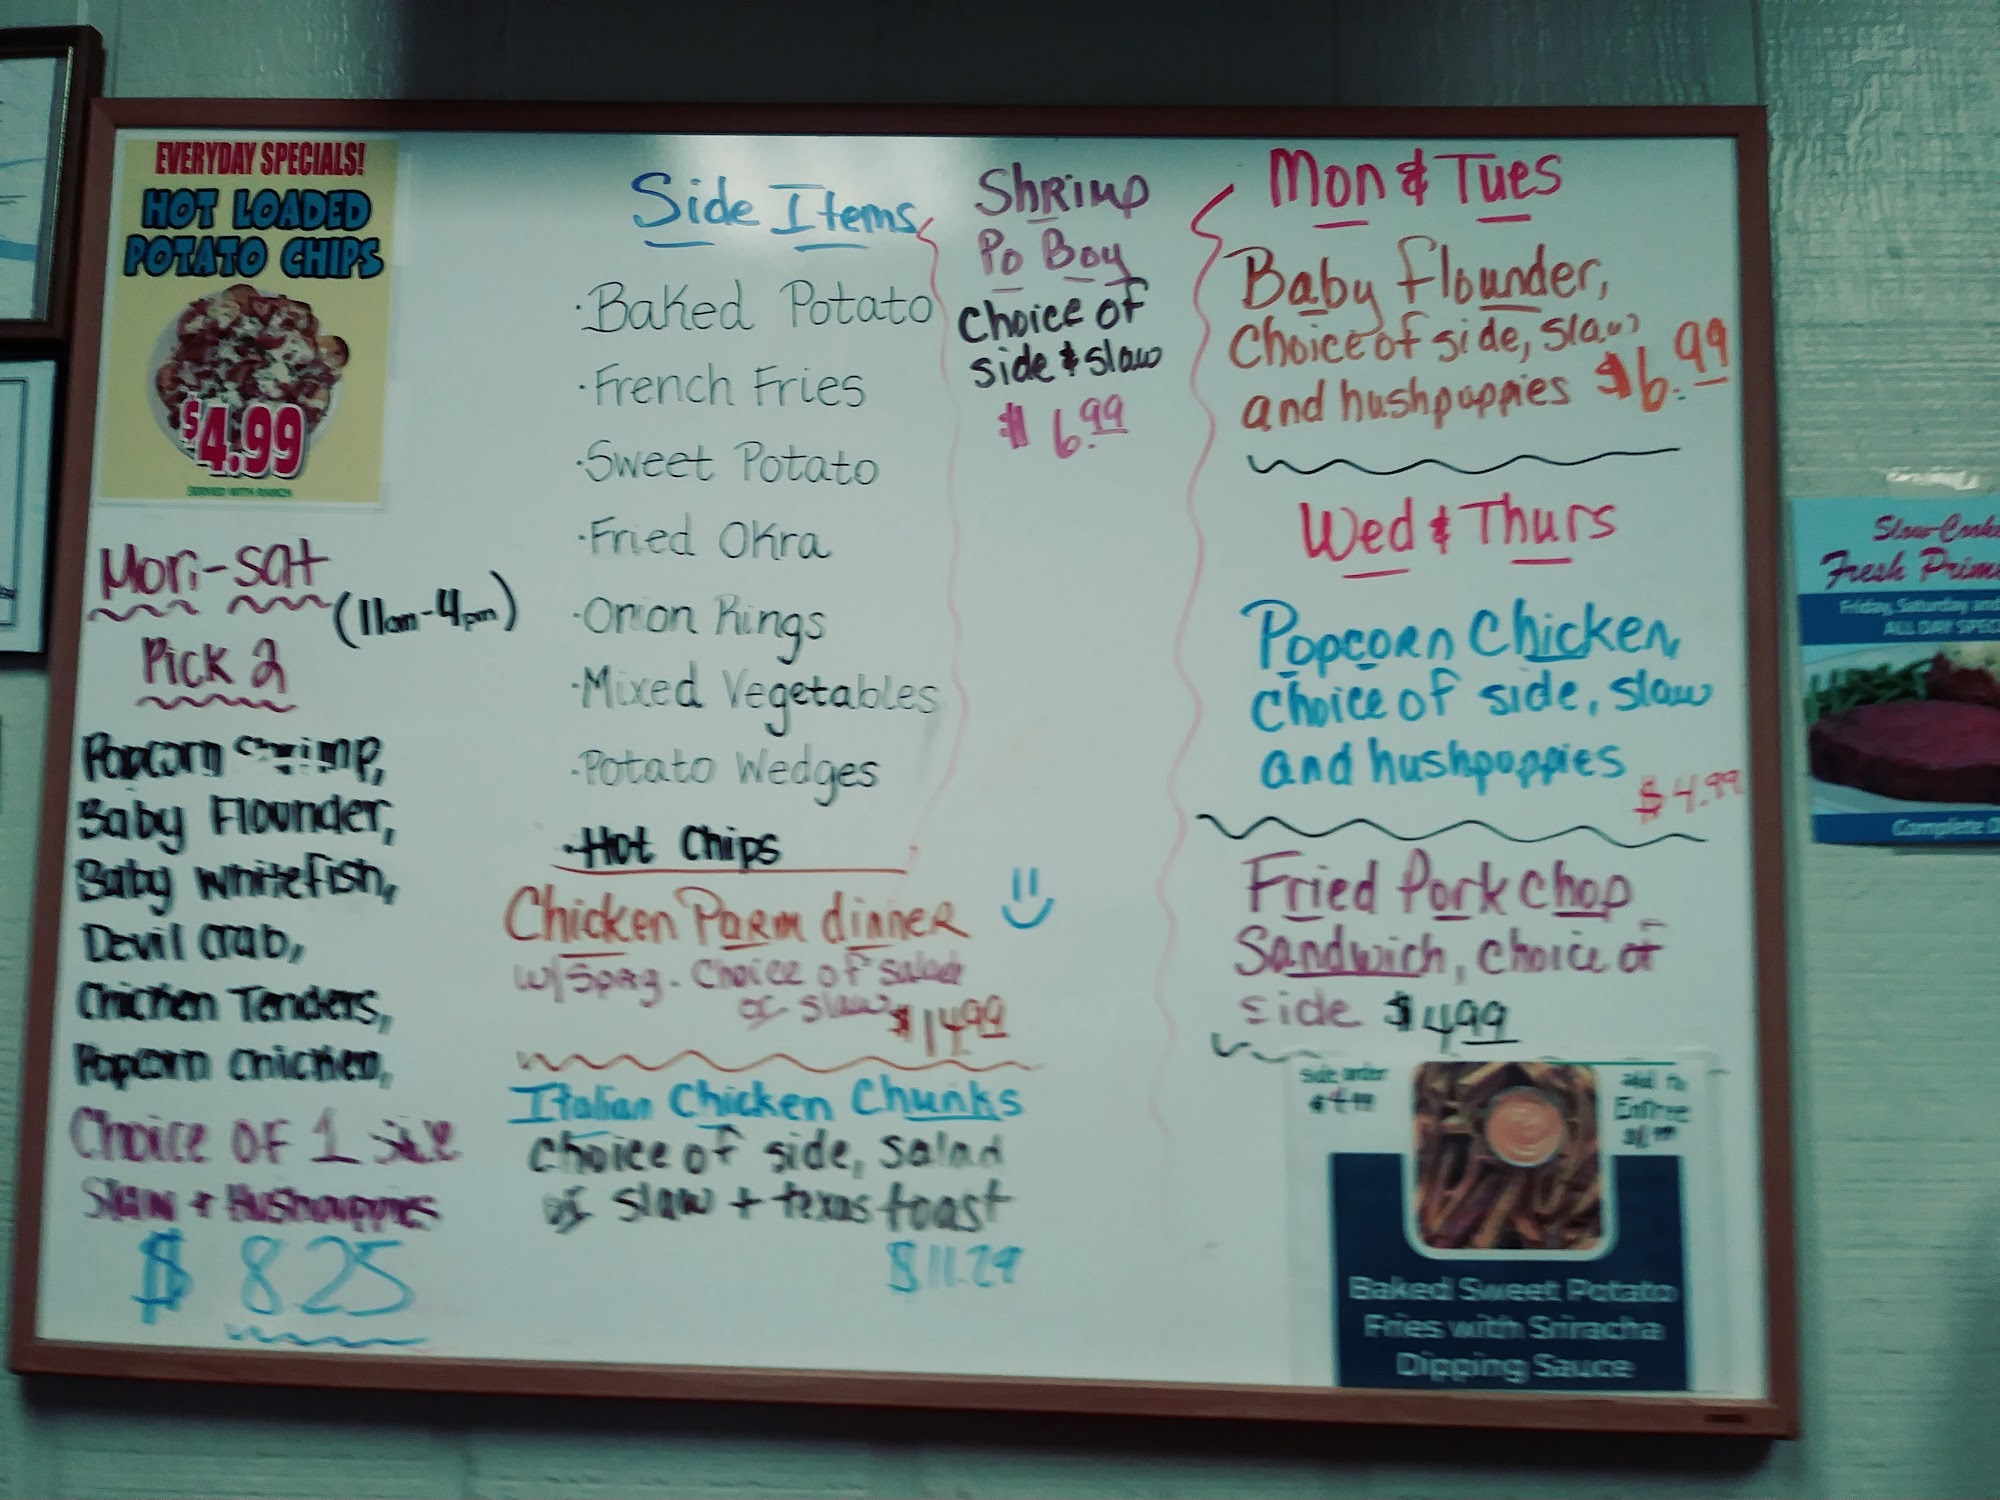 EVERYDAY SPECIALS!
HOT LOADED
POTATO CHIPS
$4.99
SERVED WITH RANCH
Mon-Sat
(11am-4pm)
Pick 2
Popcorn Shrimp,
Baby Flounder,
Baby Whitefish,
Devil Crab,
Chicken Tenders,
Popcorn Chicken,
Choice of 1 side
Slaw + Hushpuppies
$ 8.25
Side Items
·Baked Potato
·French Fries
·Sweet Potato
·Fried Okra
·Onion Rings
·Mixed Vegetables
·Potato Wedges
·Hot Chips
Chicken Parm dinner
w/Spag. Choice of Salad
or slaw $14.99
Italian Chicken Chunks
Choice of side, salad
or slaw + texas toast
$11.29
Shrimp
Po Boy
Choice of
side & slaw
$6.99
Mon & Tues
Baby Flounder,
Choice of side, slaw
and hushpuppies $6.99
Wed & Thurs
Popcorn Chicken,
Choice of side, slaw
and hushpuppies
$4.99
Fried Pork Chop
Sandwich, choice of
side $4.99
Side order
add to
Entree
Baked Sweet Potato
Fries with Sriracha
Dipping Sauce
Fresh
Friday, Saturday
ALL DAY
Complete